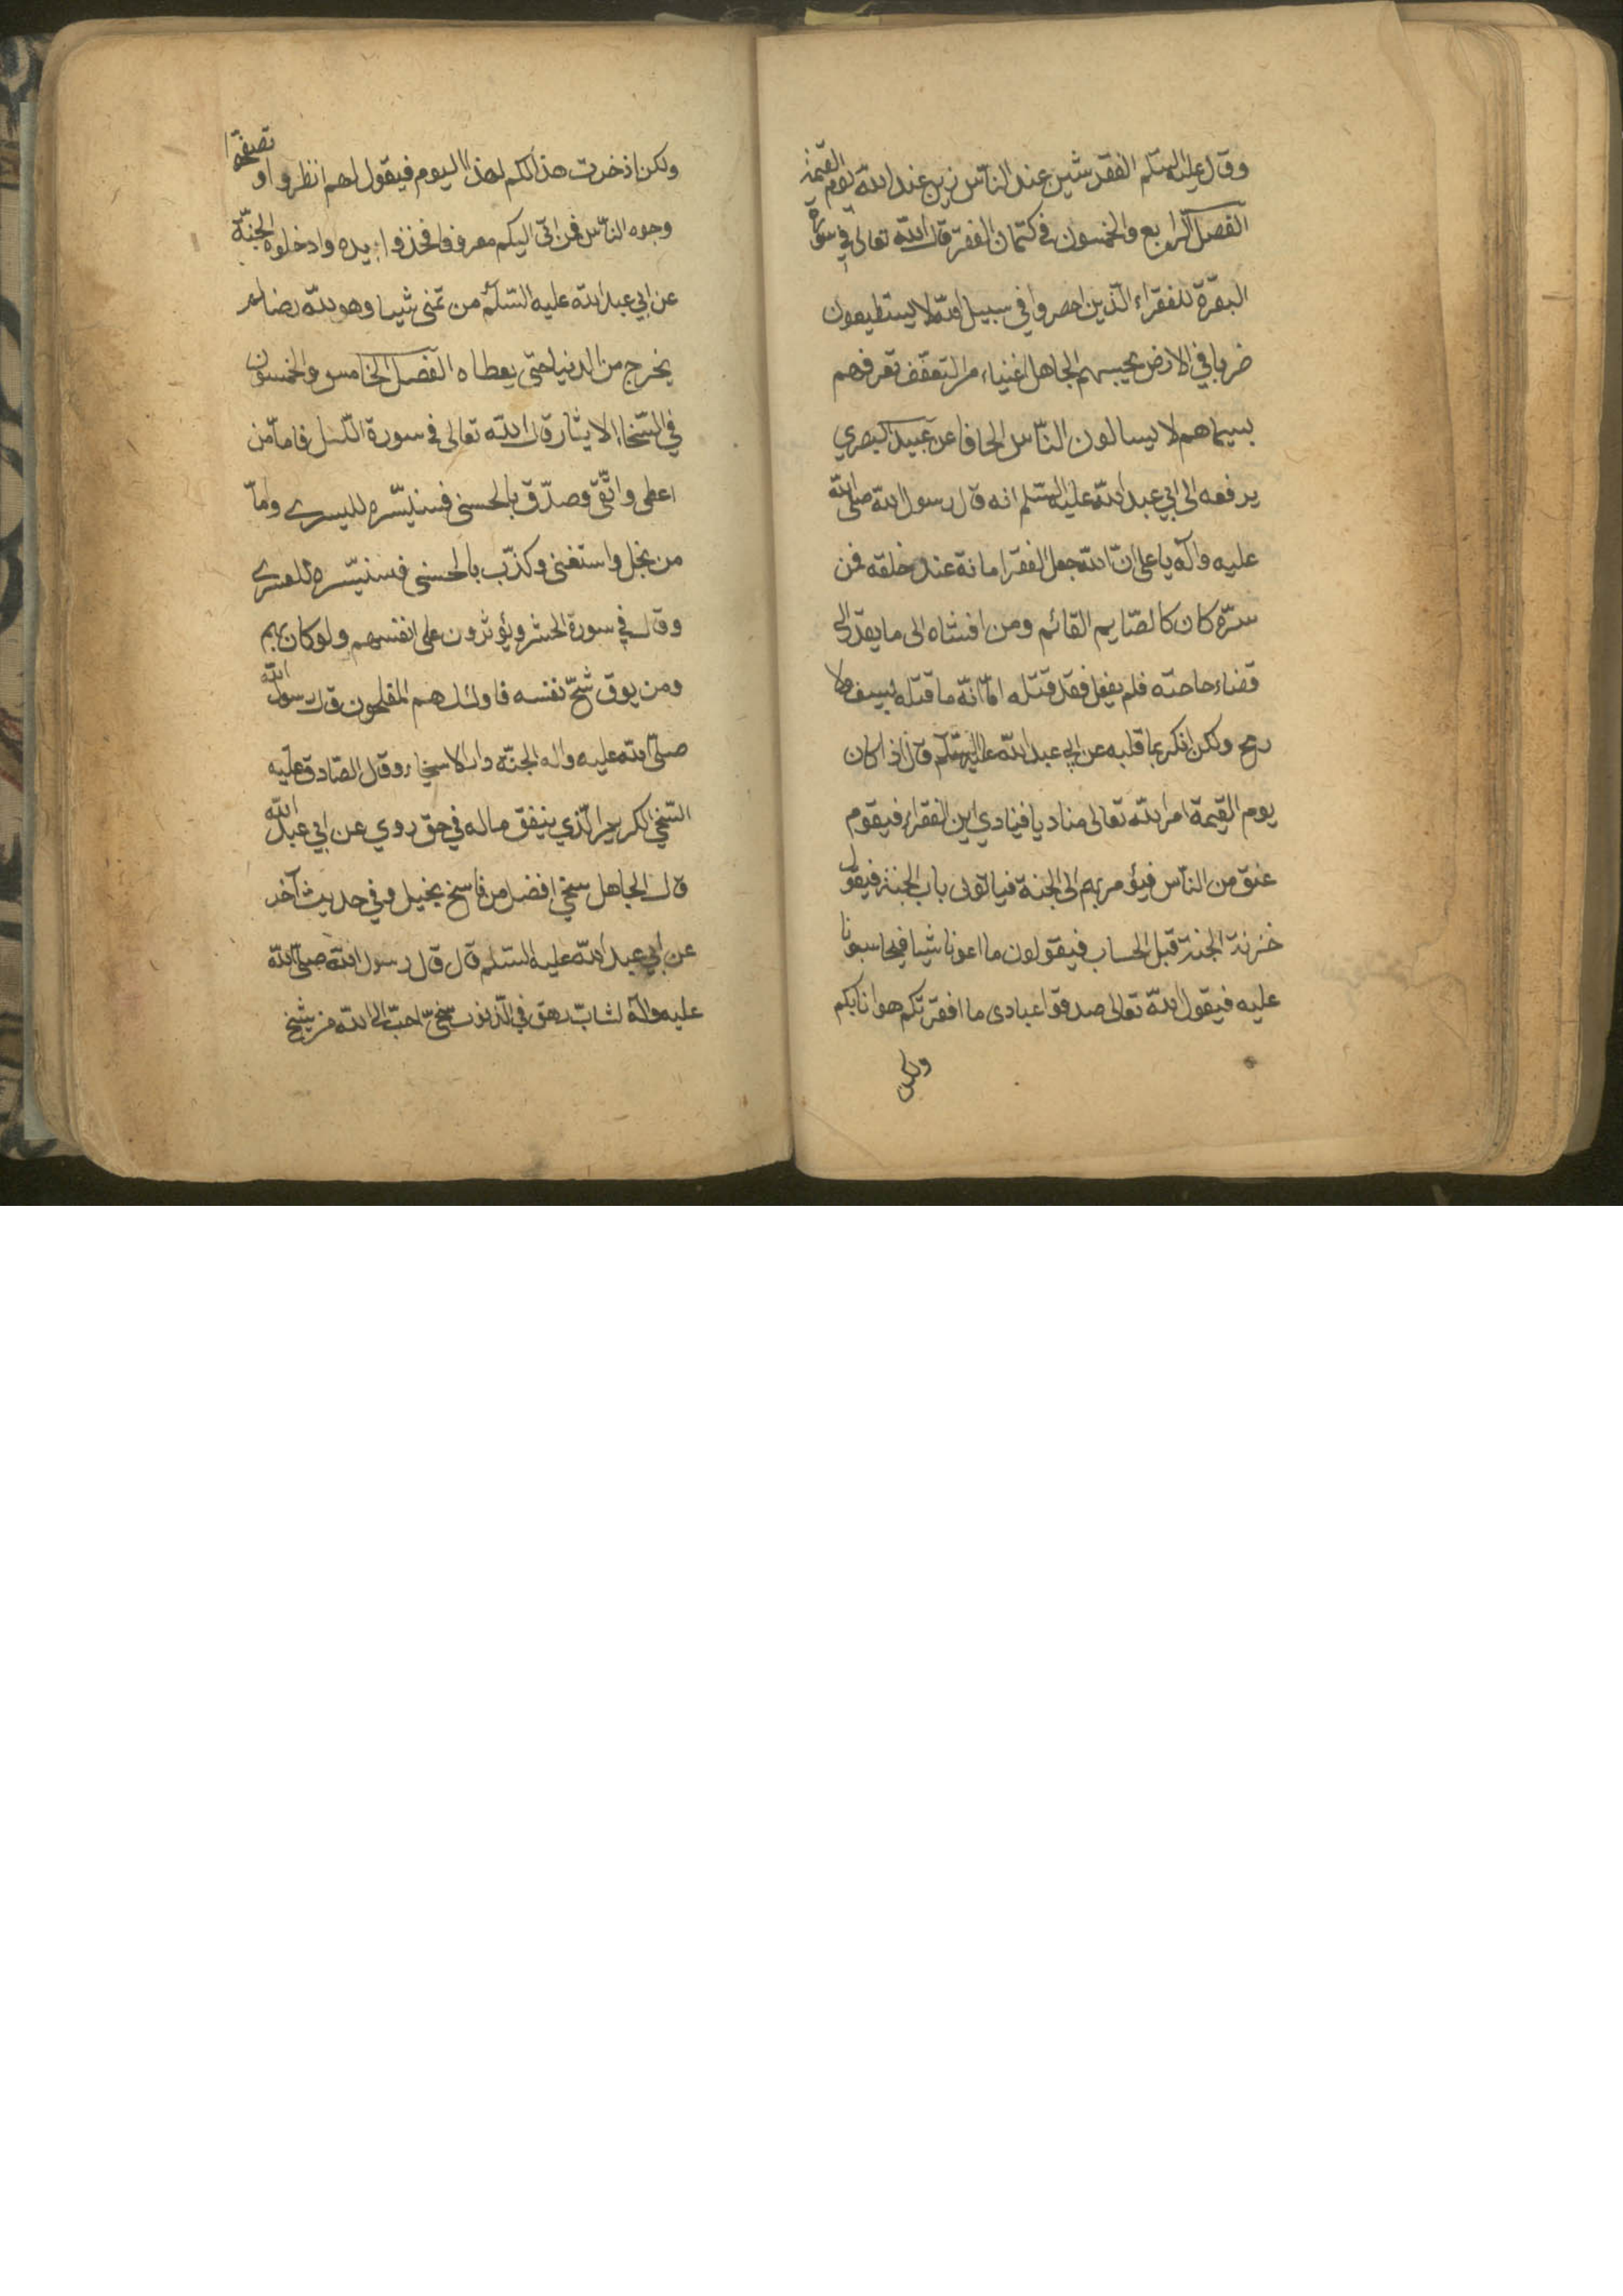 وقال عليه السلم الفقر شين عند الناس زين عند الله يوم القيمة
الفصل الرابع والخمسون في كتمان الفقر قال الله تعالى في سورة
البقرة للفقراء الذين احصروا في سبيل الله لا يستطيعون
ضربا في الارض يحسبهم الجاهل اغنياء من التعفف تعرفهم
بسيماهم لا يسالون الناس الحافا عن عبيد البصري
يرفعه الى ابي عبد الله عليه السلم انه قال رسول الله صلى الله
عليه وآله يا علي ان الله جعل الفقر امانة عند خلقه فمن
سره كان كالصايم القائم ومن افشاه الى ما يقدر الى
قضاء حاجته فلم يفعل فقد قتله اما انه ما قتله بسيف ولا
رمح ولكن انكر بما قلبه عن ابي عبد الله عليه السلم قال اذا كان
يوم القيمة امر الله تعالى مناديا فينادي اين الفقراء فيقوم
عنق من الناس فيؤمر بهم الى الجنة فياتون باب الجنة فيقول
خزنة الجنة قبل الحساب فيقولون ما اعونا شيا فيحاسبونا
عليه فيقول الله تعالى صدقوا عبادى ما افقرتكم هوانا بكم
ولكن
ولكن اذخرت هذا لكم لهذا اليوم فيقول لهم انظروا و تصفحوا
وجوه الناس فمن اتى اليكم معروفا فخذوا بيده وادخلوه الجنة
عن ابي عبد الله عليه السلم من تمنى شيا وهو لله رضا لم
يخرج من الدنيا حتى يعطاه الفصل الخامس والخمسون
في السخا الايثار قال الله تعالى في سورة الليل فاما من
اعطى واتقى وصدق بالحسنى فسنيسره لليسرى واما
من بخل واستغنى وكذب بالحسنى فسنيسره للعسرى
وقال في سورة الحشر ويؤثرون على انفسهم ولو كان بهم
ومن يوق شح نفسه فاولئك هم المفلحون قال رسول الله
صلى الله عليه واله الجنة دار الاسخياء وقال الصادق عليه
السخي الكريم الذي ينفق ماله في حق روي عن ابي عبد الله
قال الجاهل سخي افضل من ناسخ بخيل وفي حديث آخر
عن ابي عبد الله عليه السلم قال قال رسول الله صلى الله
عليه وآله لشاب رهق في الذنوب سخي احب الى الله من شيخ